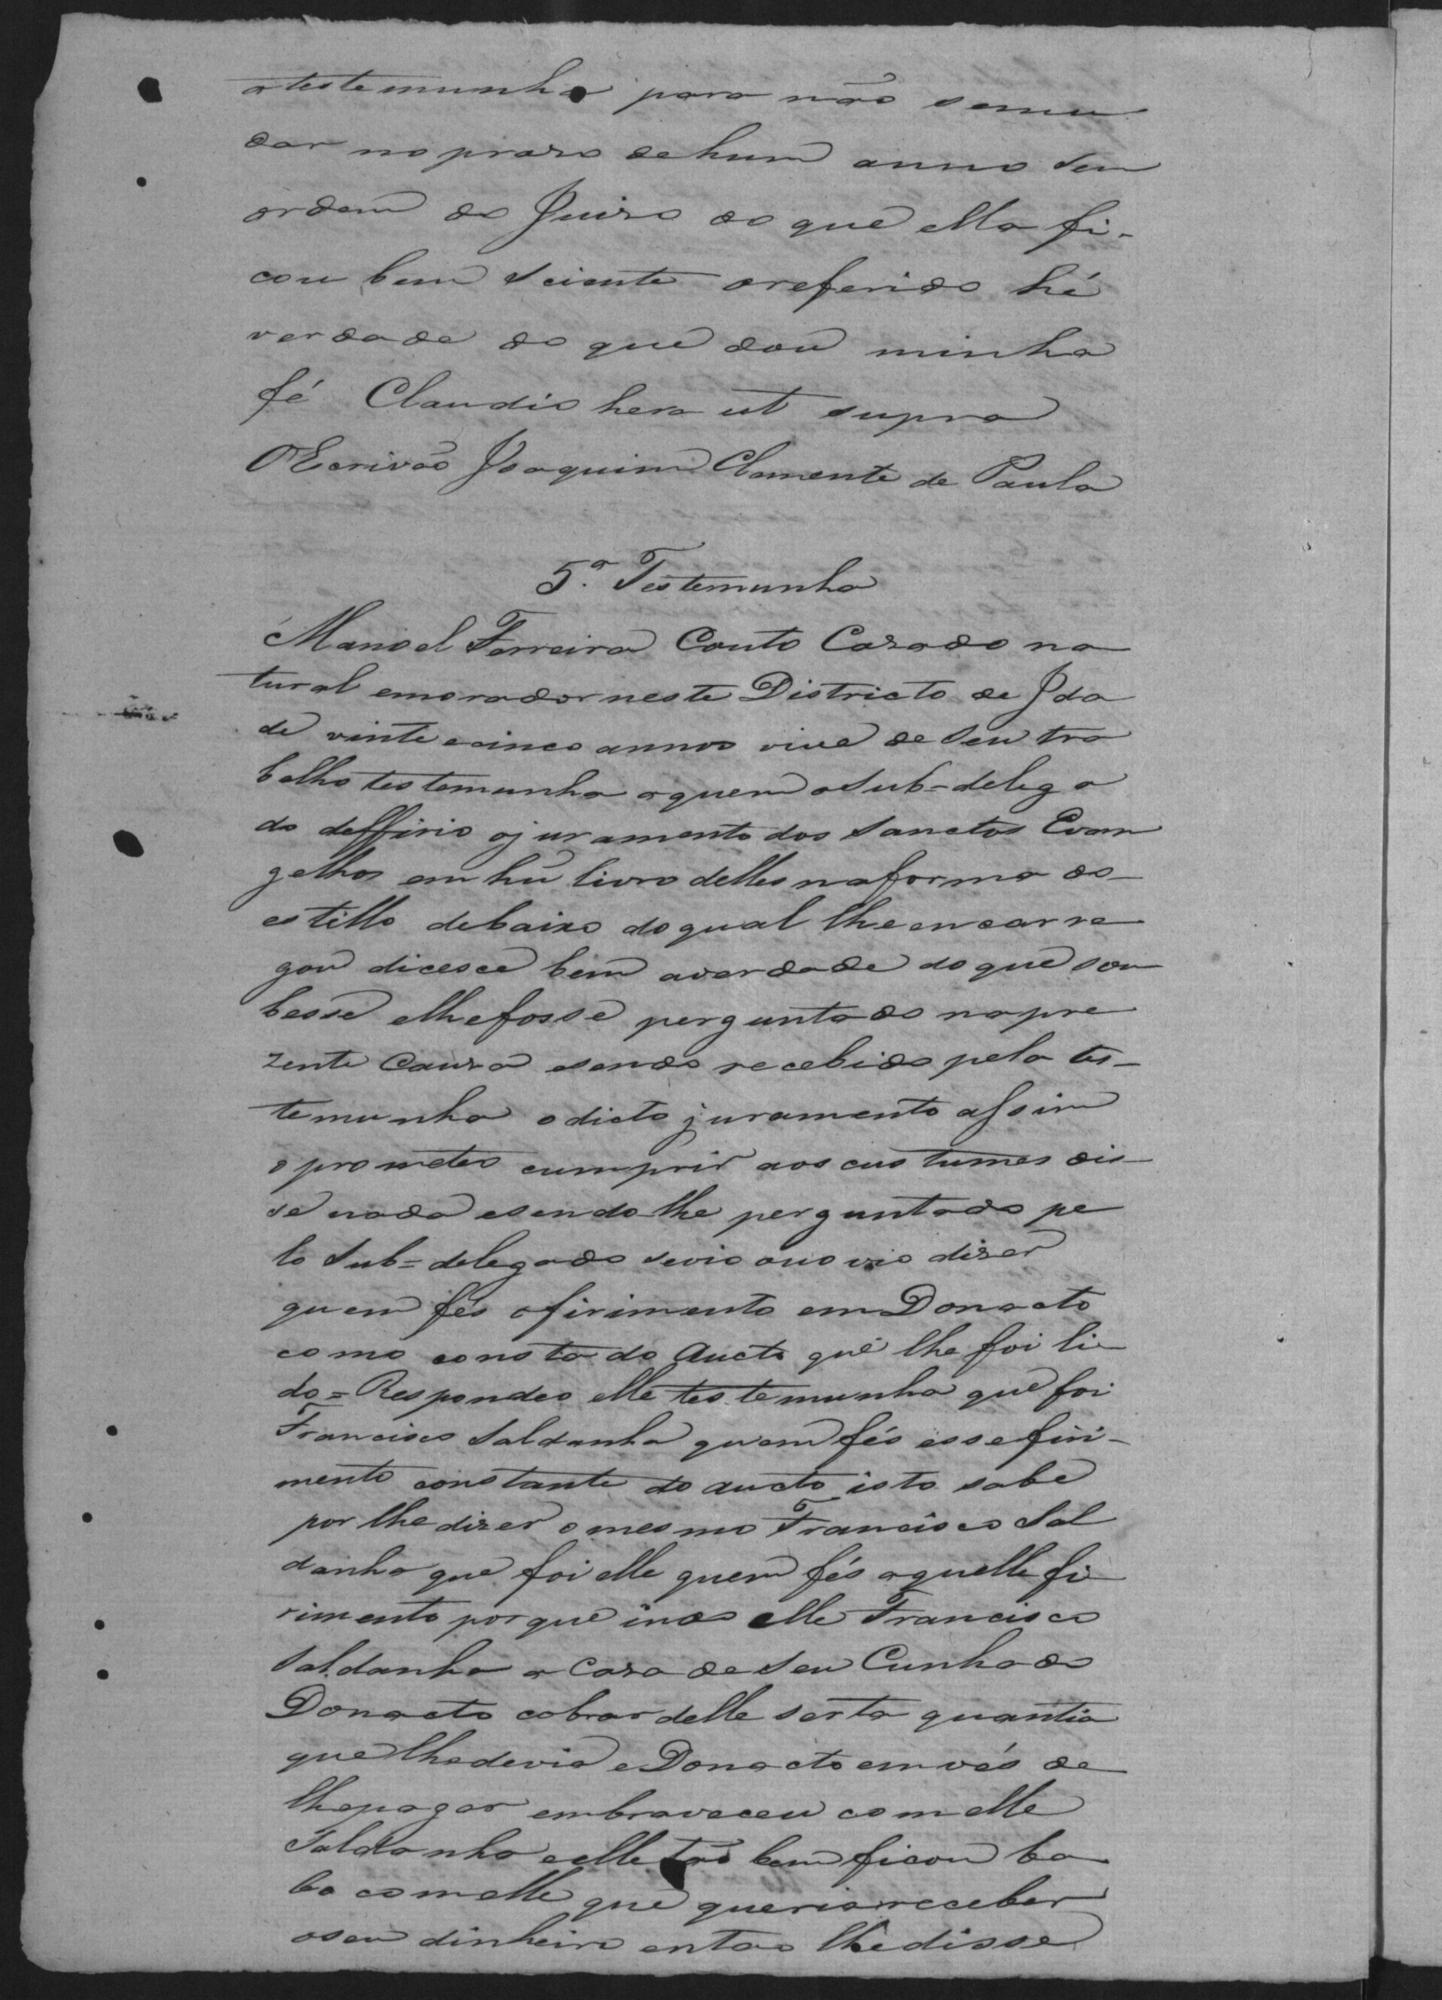 a testemunha para não semu
dar no praso de hum anno sem
ordem do Juizo do que ella fi-
cou bem sciente o referido hé
verdade do que dou minha
fé Claudio hera ut supra
O Escrivão Joaquim Clemente de Paula
5.ª Testemunha
Manoel Ferreira Couto Casado na
tural emorador neste Districto de Ida
de vinte ecinco annos vive de seu tra
balho testemunha aquem o Sub-delega
do deffirio ojuramento dos Sanctos Evan
gelhos em hũ livro delles naforma do
estillo debaixo doqual lhe encarre
gou dicesce bem averdade do que sou
besse elhefosse perguntado napre
zente Causa esendo recebido pela tes-
temunha odicto juramento assim
o prometeo cumprir aos custumes dis
se nada esendolhe perguntado pe
lo Sub-delegado sevio ououvio dizer
quem fés ofirimento em Donacto
como consta do Aucto que lhe foi li
do = Respondeo elle testemunha que foi
Francisco Saldanha quem fés esse firi-
mento constante do aucto isto sabe
por lhe dizer o mesmo Francisco Sal
danha que foi elle quem fés aquelle fi
rimento porque indo elle Francisco
Saldanha a Casa de seu Cunhado
Donacto cobrar delle serta quantia
que lhedevia e Donacto em vés de
lhepagar embraveceu com elle
Saldanha eelle tão bem ficou ba
bo comelle que queria receber
oseu dinheiro entao lhe disse